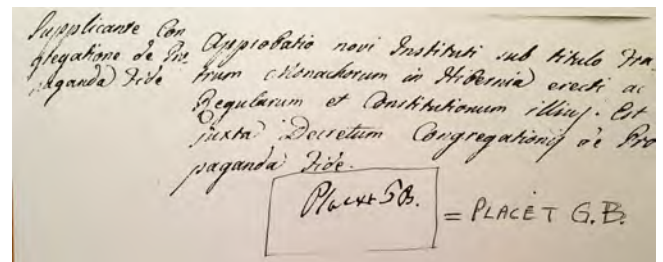 Supplicante Con
gregatione de Pro
paganda Fide
Approbatio novi Instituti sub titulo Fra
trum Monachorum in Hibernia erecti ac
Regularum et Constitutionum illius. Est
juxta Decretum Congregationis de Pro
paganda Fide.
Placet G B.
= PLACET G.B.